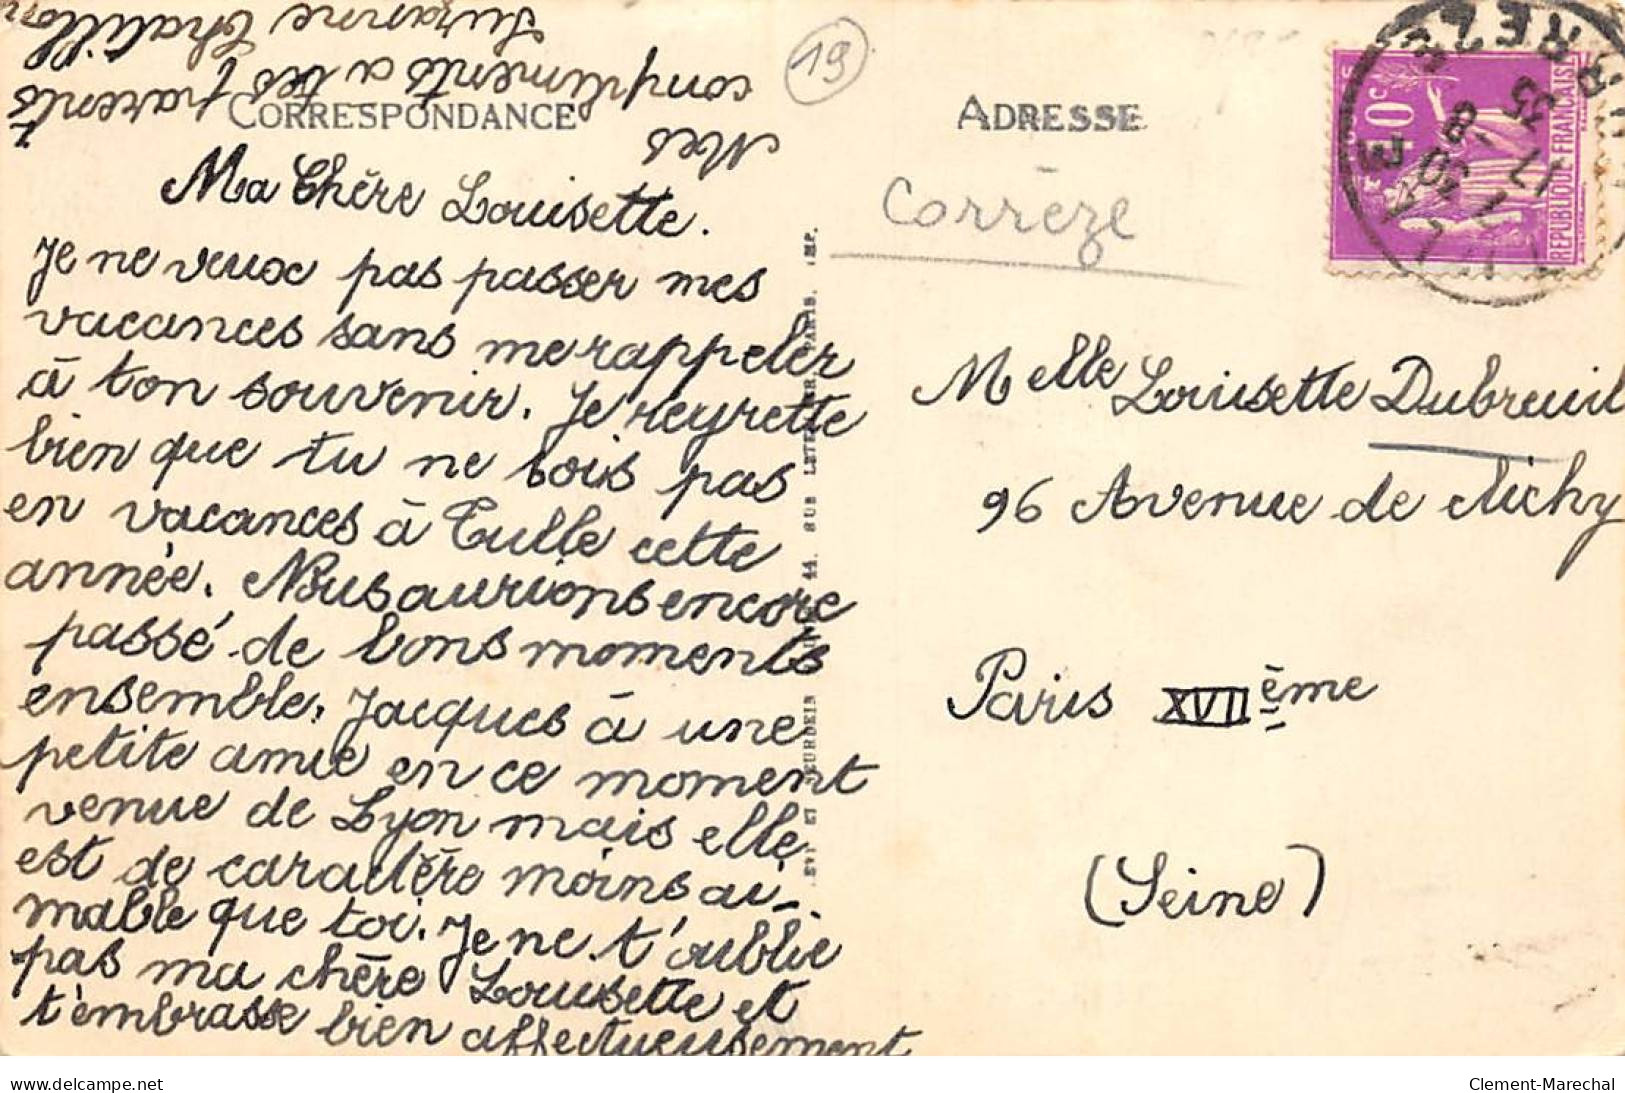 19
CORRESPONDANCE
Ma Chère Louisette.
Je ne veux pas passer mes
vacances sans me rappeler
à ton souvenir. Je regrette
bien que tu ne sois pas
en vacances à Tulle cette
année. Nous aurions encore
passé de bons moments
ensemble. Jacques à une
petite amie en ce moment
venue de Lyon mais elle
est de caractère moins ai-
mable que toi. Je ne t'oublie
pas ma chère Louisette et
t'embrasse bien affectueusement
Mes
compliments a tes parents
Suzanne Chatillon
ADRESSE
Corrèze
Melle Louisette Dubreuil
96 Avenue de Clichy
Paris XVIIème
(Seine)
40c
REPUBLIQUE FRANÇAISE
17 30
delcampe.net
Clement-Marechal